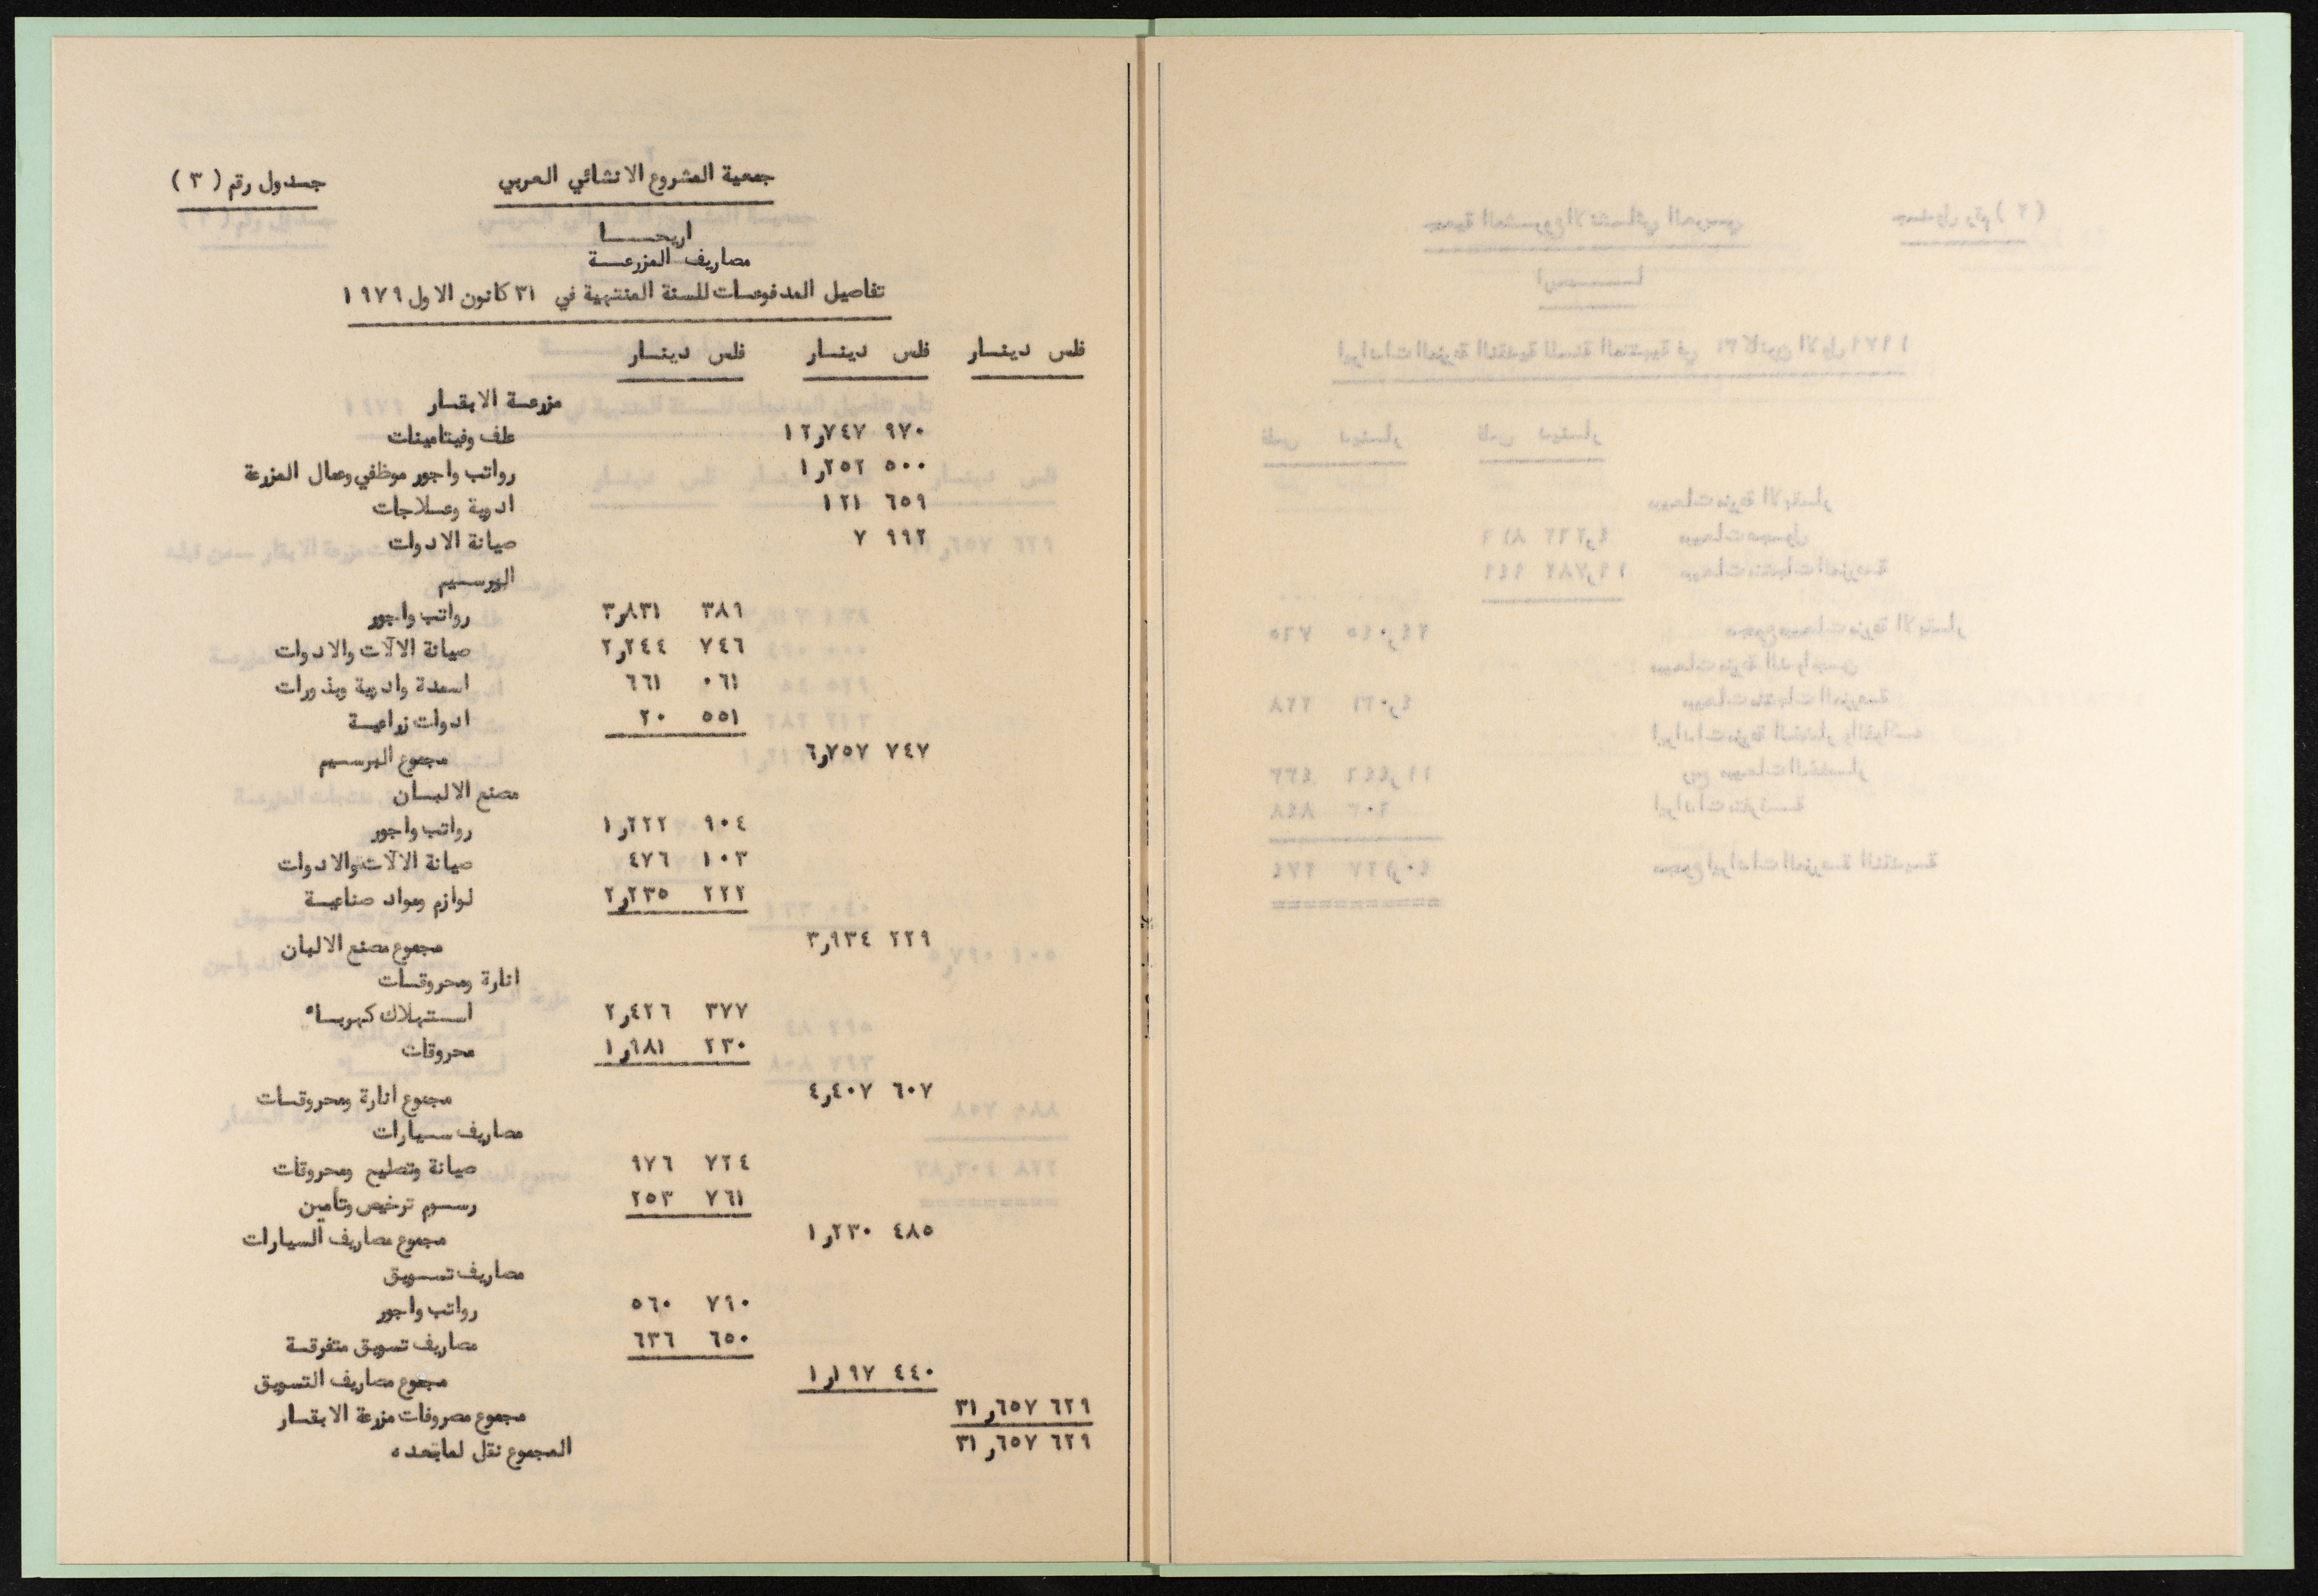 جدول رقم ( ٣ )
جمعية المشروع الانشائي العربي
اريحــــا
مصاريف المزرعــة
تفاصيل المدفوعــات للسنة المنتهية في ٣١ كانون الاول ١٩٧٩
فلس دينــار فلس دينــار فلس دينــار
مزرعــة الابقــار
علف وفيتامينات ٩٧٠ ١٢,٧٤٧
رواتب واجور موظفي وعمال المزرعة ٥٠٠ ١,٢٥٢
ادوية وعــلاجات ٦٥٩ ١٢١
صيانة الادوات ٩٩٢ ٧
البرسـيم
رواتب واجور ٣٨٩ ٣,٨٣١
صيانة الآلات والادوات ٧٤٦ ٢,٢٤٤
اسمدة وادوية وبذورات ٠٦١ ٦٦١
ادوات زراعيــة ٥٥١ ٢٠
مجموع البرسـيم ٧٤٧ ٦,٧٥٧
مصنع الالبــان
رواتب واجور ٩٠٤ ١,٢٢٢
صيانة الآلات والادوات ١٠٣ ٤٧٦
لوازم ومواد صناعيــة ٢٢٢ ٢,٢٣٥
مجموع مصنع الالبان ٢٢٩ ٣,٩٣٤
انارة ومحروقــات
اسـتهلاك كهربــاء ٣٧٧ ٢,٤٢٦
محروقات ٢٣٠ ١,٩٨١
مجموع انارة ومحروقــات ٦٠٧ ٤,٤٠٧
مصاريف سـيارات
صيانة وتصليح ومحروقات ٧٢٤ ٩٧٦
رسـوم ترخيص وتأمين ٧٦١ ٢٥٣
مجموع مصاريف السيارات ٤٨٥ ١,٢٣٠
مصاريف تسـويق
رواتب واجور ٧٩٠ ٥٦٠
مصاريف تسويق متفرقــة ٦٥٠ ٦٣٦
مجموع مصاريف التسويق ٤٤٠ ١,١٩٧
مجموع مصروفات مزرعة الابقــار ٦٢٩ ٣١,٦٥٧
المجموع نقل لمابعـده ٦٢٩ ٣١,٦٥٧